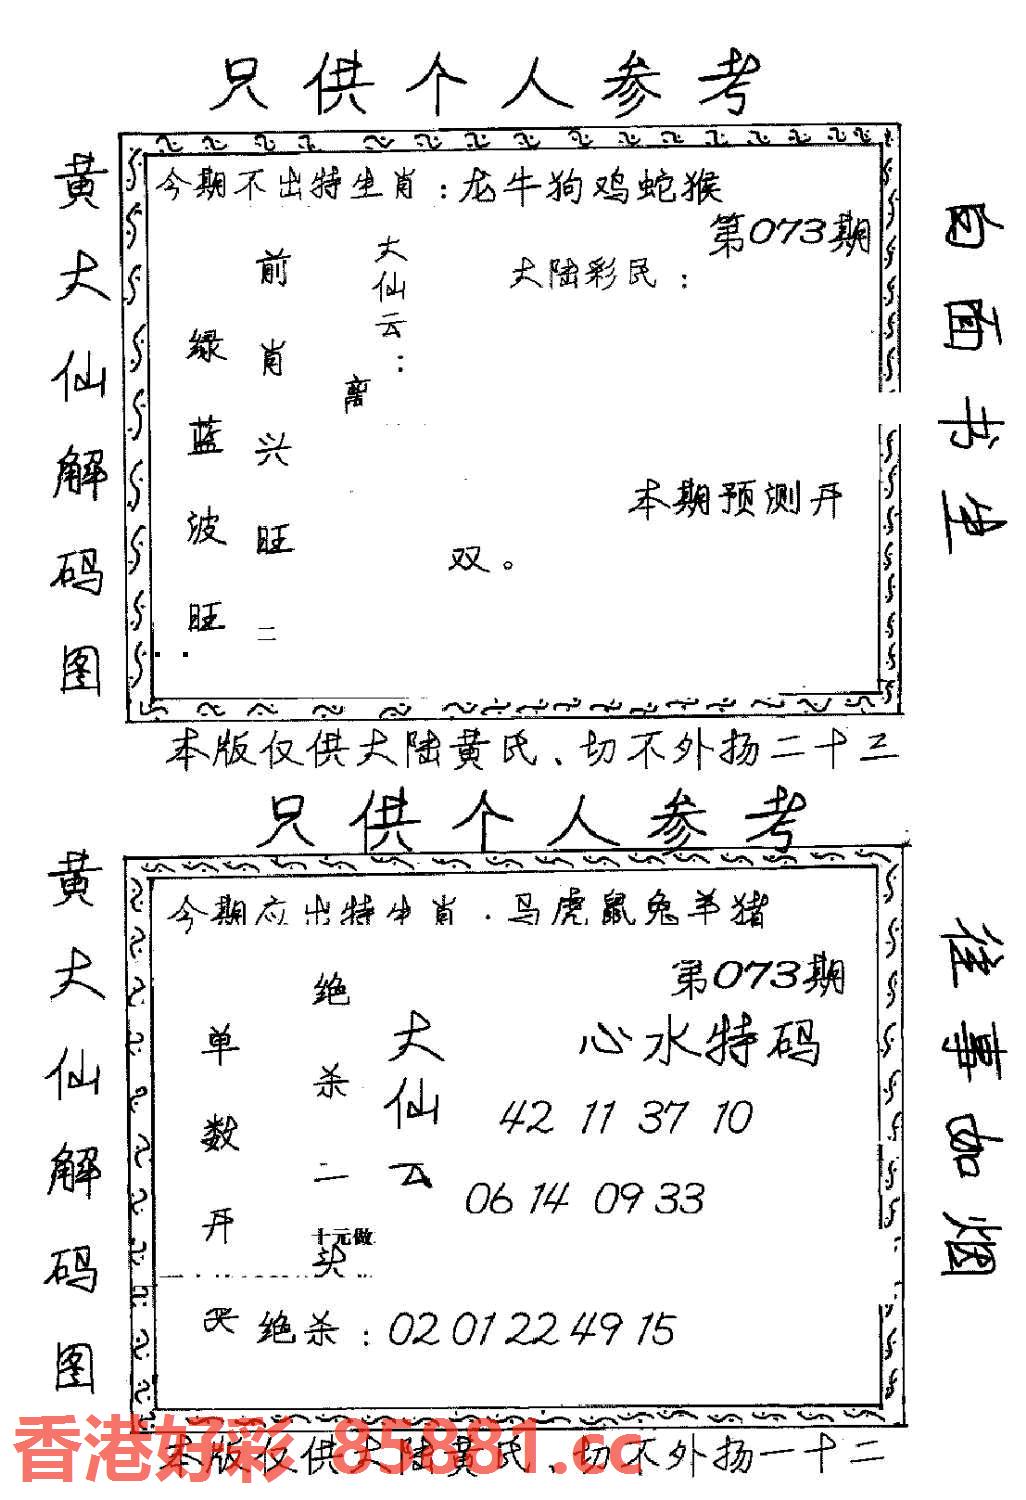 只供个人参考
黄大仙解码图
今期不出特生肖:龙牛狗鸡蛇猴
第073期
大陆彩民:
大仙云:
离
前肖兴旺二
绿蓝波旺
本期预测开
双。
白面书生
本版仅供大陆黄民、切不外扬二十三
只供个人参考
黄大仙解码图
今期应出特生肖·马虎鼠兔羊猪
第073期
心水特码
42 11 37 10
06 14 09 33
大仙云
绝杀二
十元做
头
单数开
绝杀:02 01 22 49 15
往事如烟
本版仅供大陆黄民、切不外扬一十二
香港好彩 85881.cc